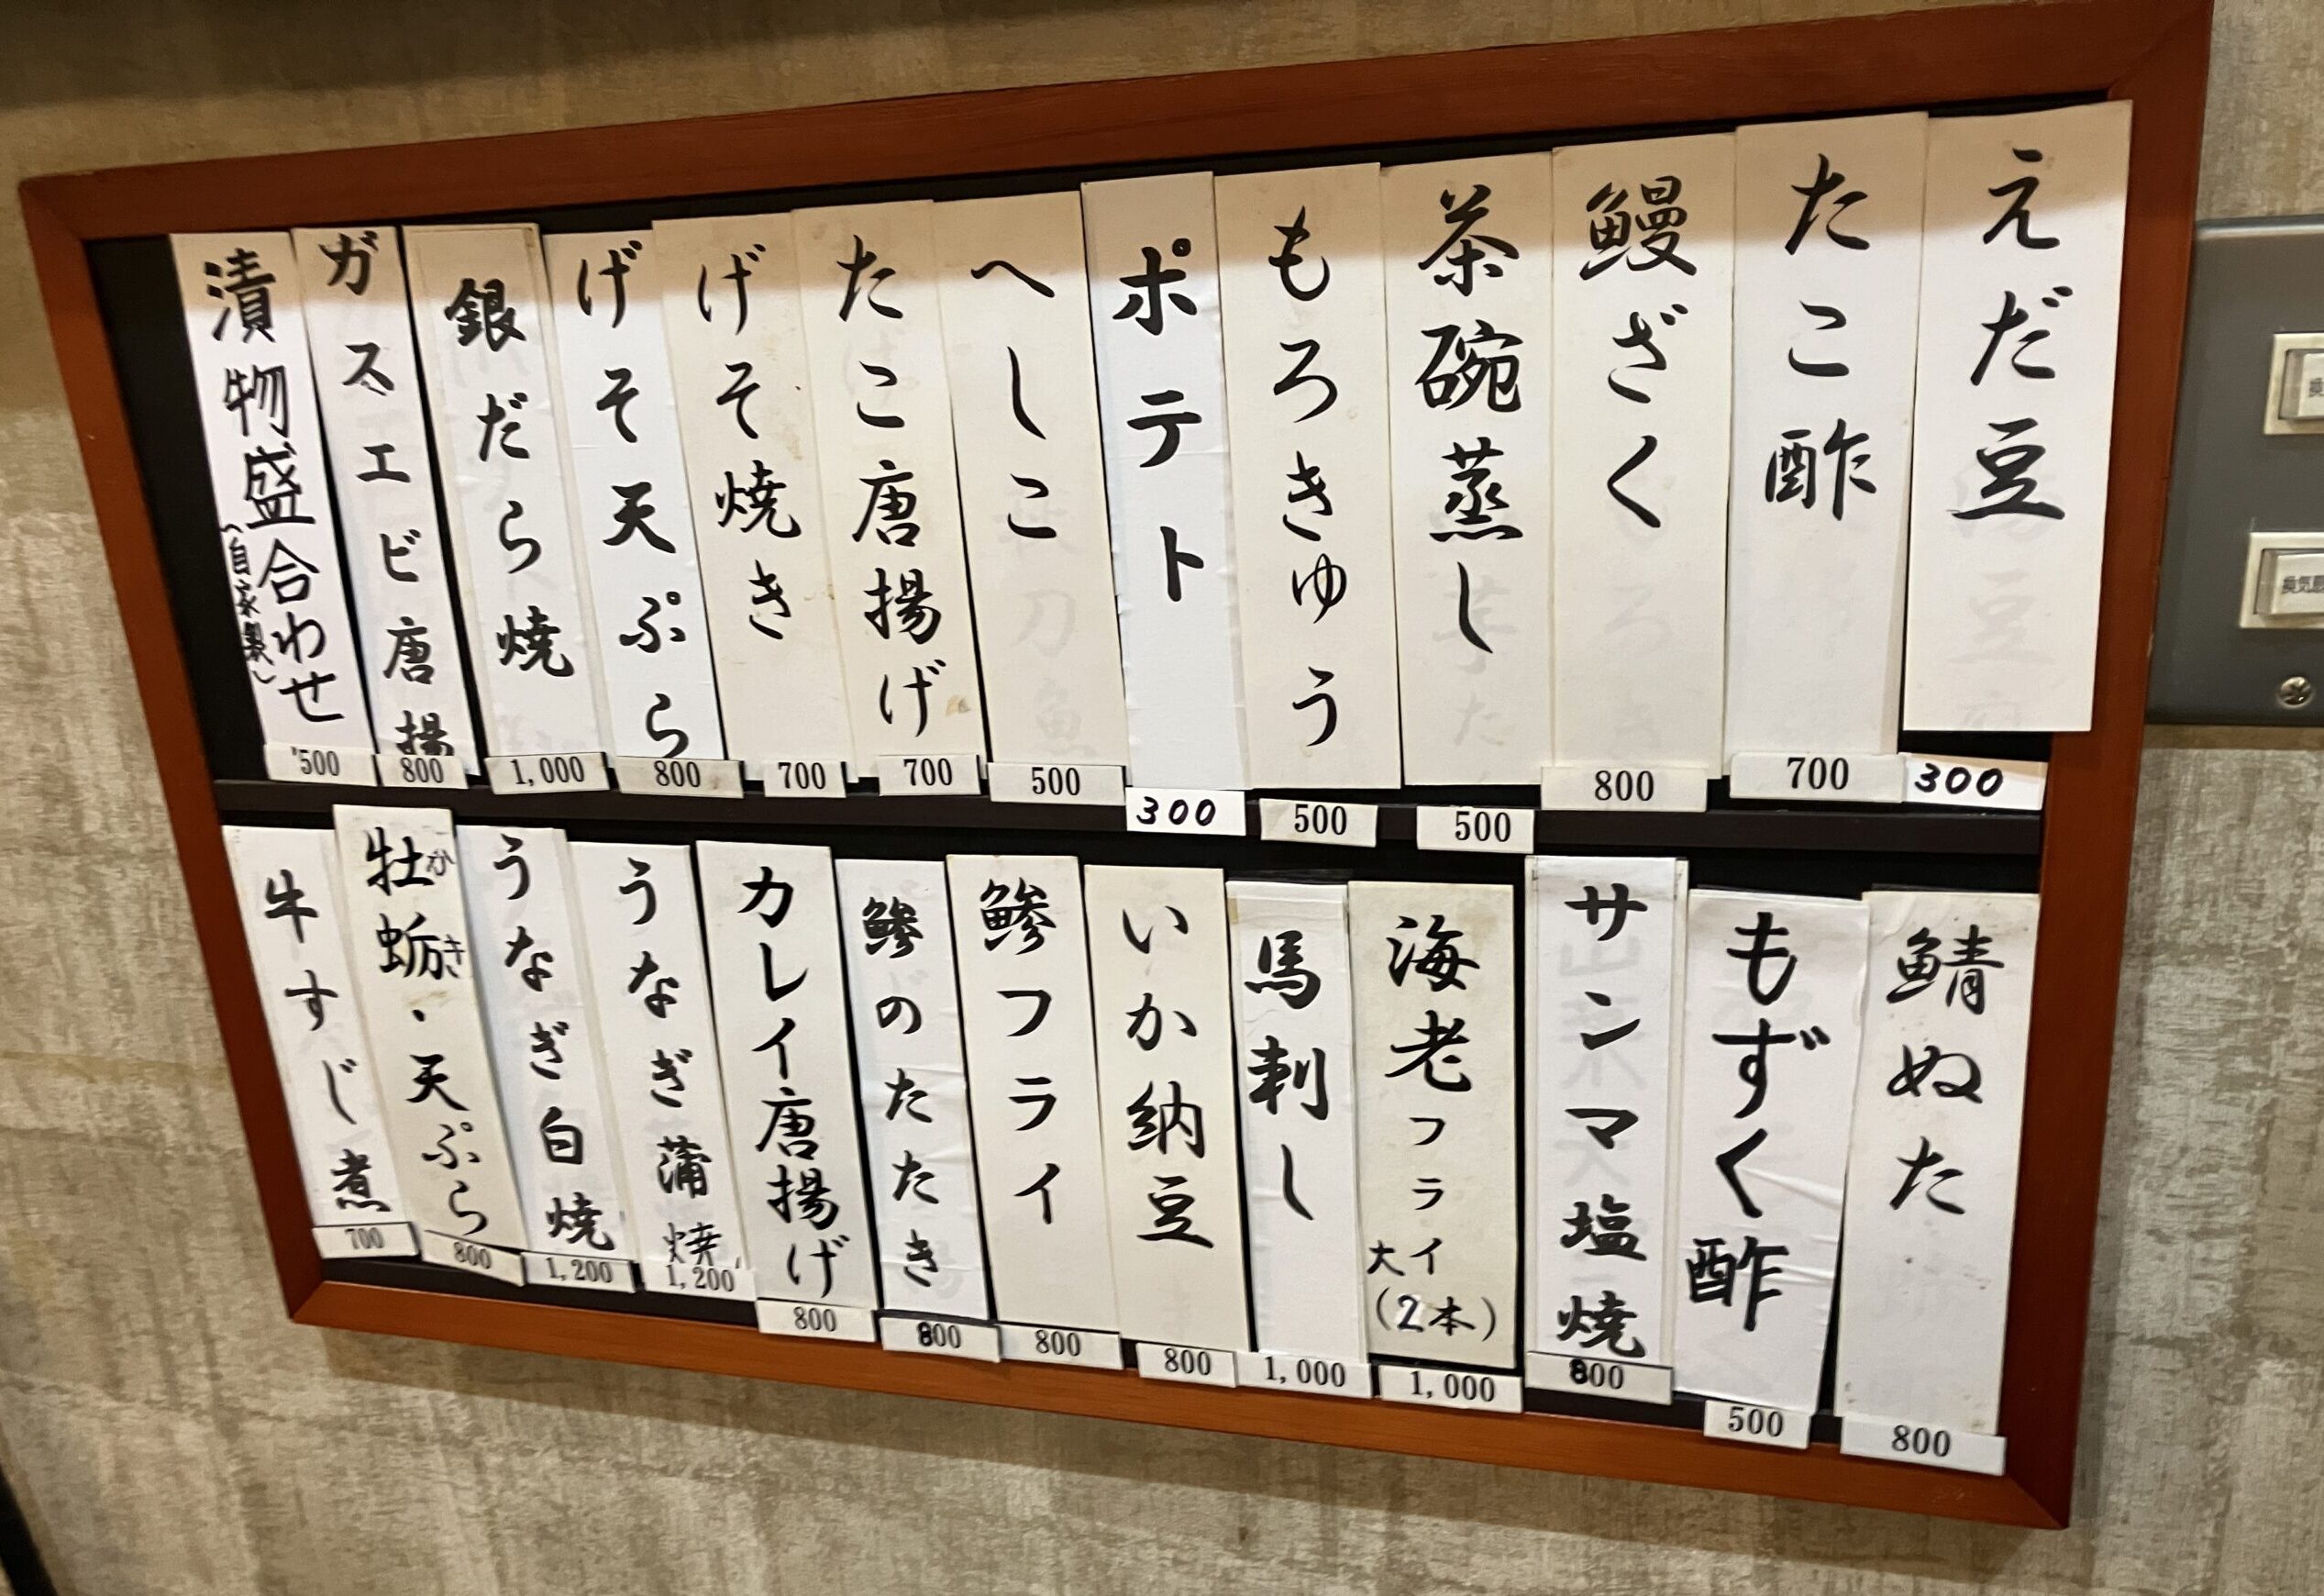 えだ豆
300
たこ酢
700
鰻ざく
800
茶碗蒸し
500
もろきゅう
500
ポテト
300
へしこ
500
たこ唐揚げ
700
げそ焼き
700
げそ天ぷら
800
銀だら焼
1,000
ガスエビ唐揚
800
漬物盛合わせ
(自家製)
500
鯖ぬた
800
もずく酢
500
サンマ塩焼
800
海老フライ
大
(2本)
1,000
馬刺し
1,000
いか納豆
800
鯵フライ
800
鯵のたたき
800
カレイ唐揚げ
800
うなぎ蒲焼
1,200
うなぎ白焼
1,200
牡蛎・天ぷら
かき
800
牛すじ煮
700